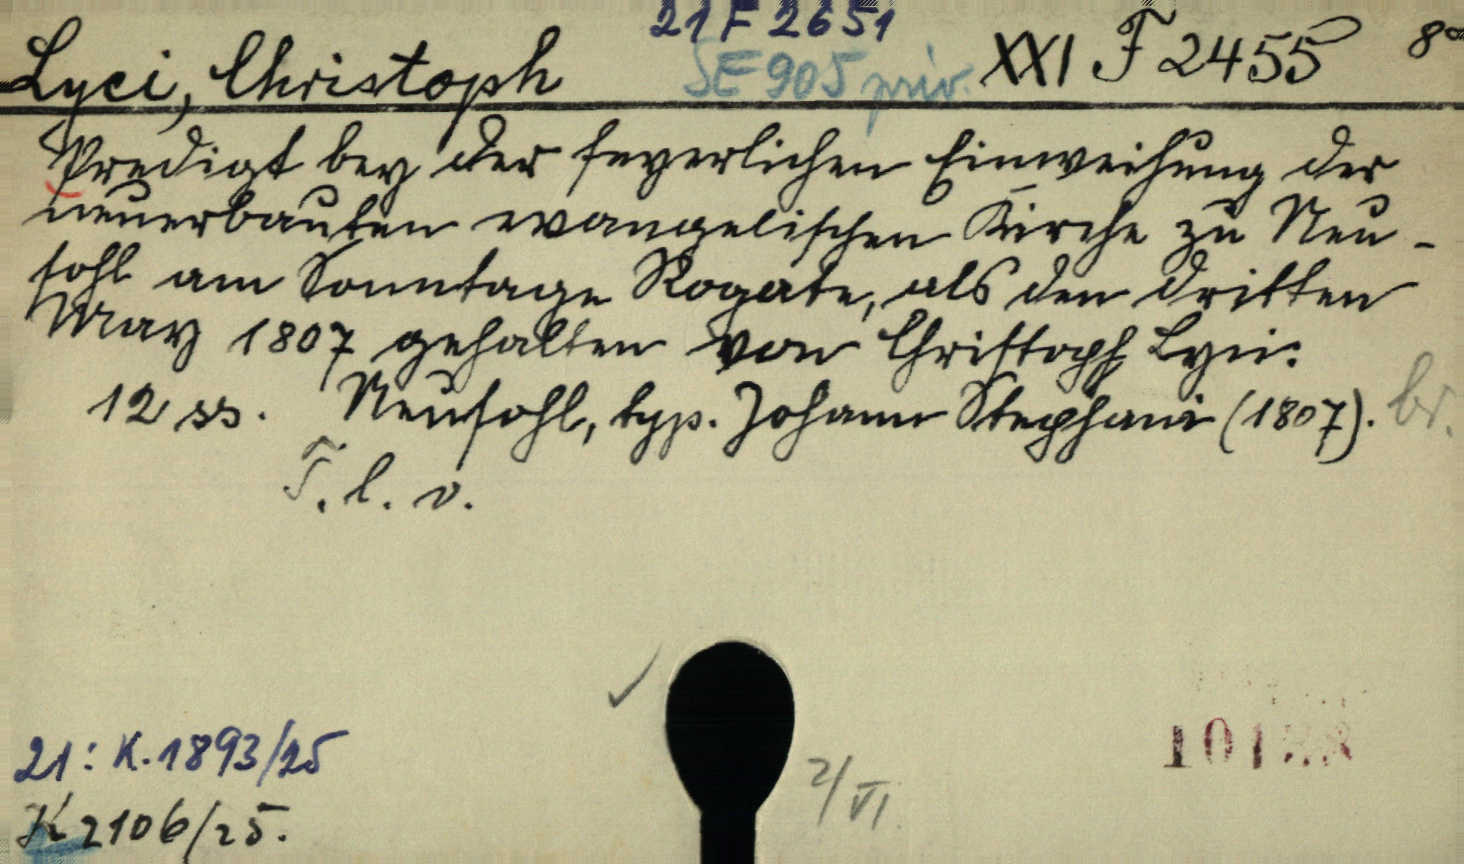 21 F 2651
Lyci, Christoph SE 905 priv. XXI F 2455 8°
Predigt bey der feyerlichen Einweihung der
neuerbauten evangelischen Kirche zu Neu-
sohl am Sonntage Rogate, als den dritten
May 1807 gehalten von Christoph Lyci.
12 ss. Neusohl, typ. Johann Stephani (1807). br.
T. l. v.
21: K. 1893/25
2/VI.
K 2106/25.